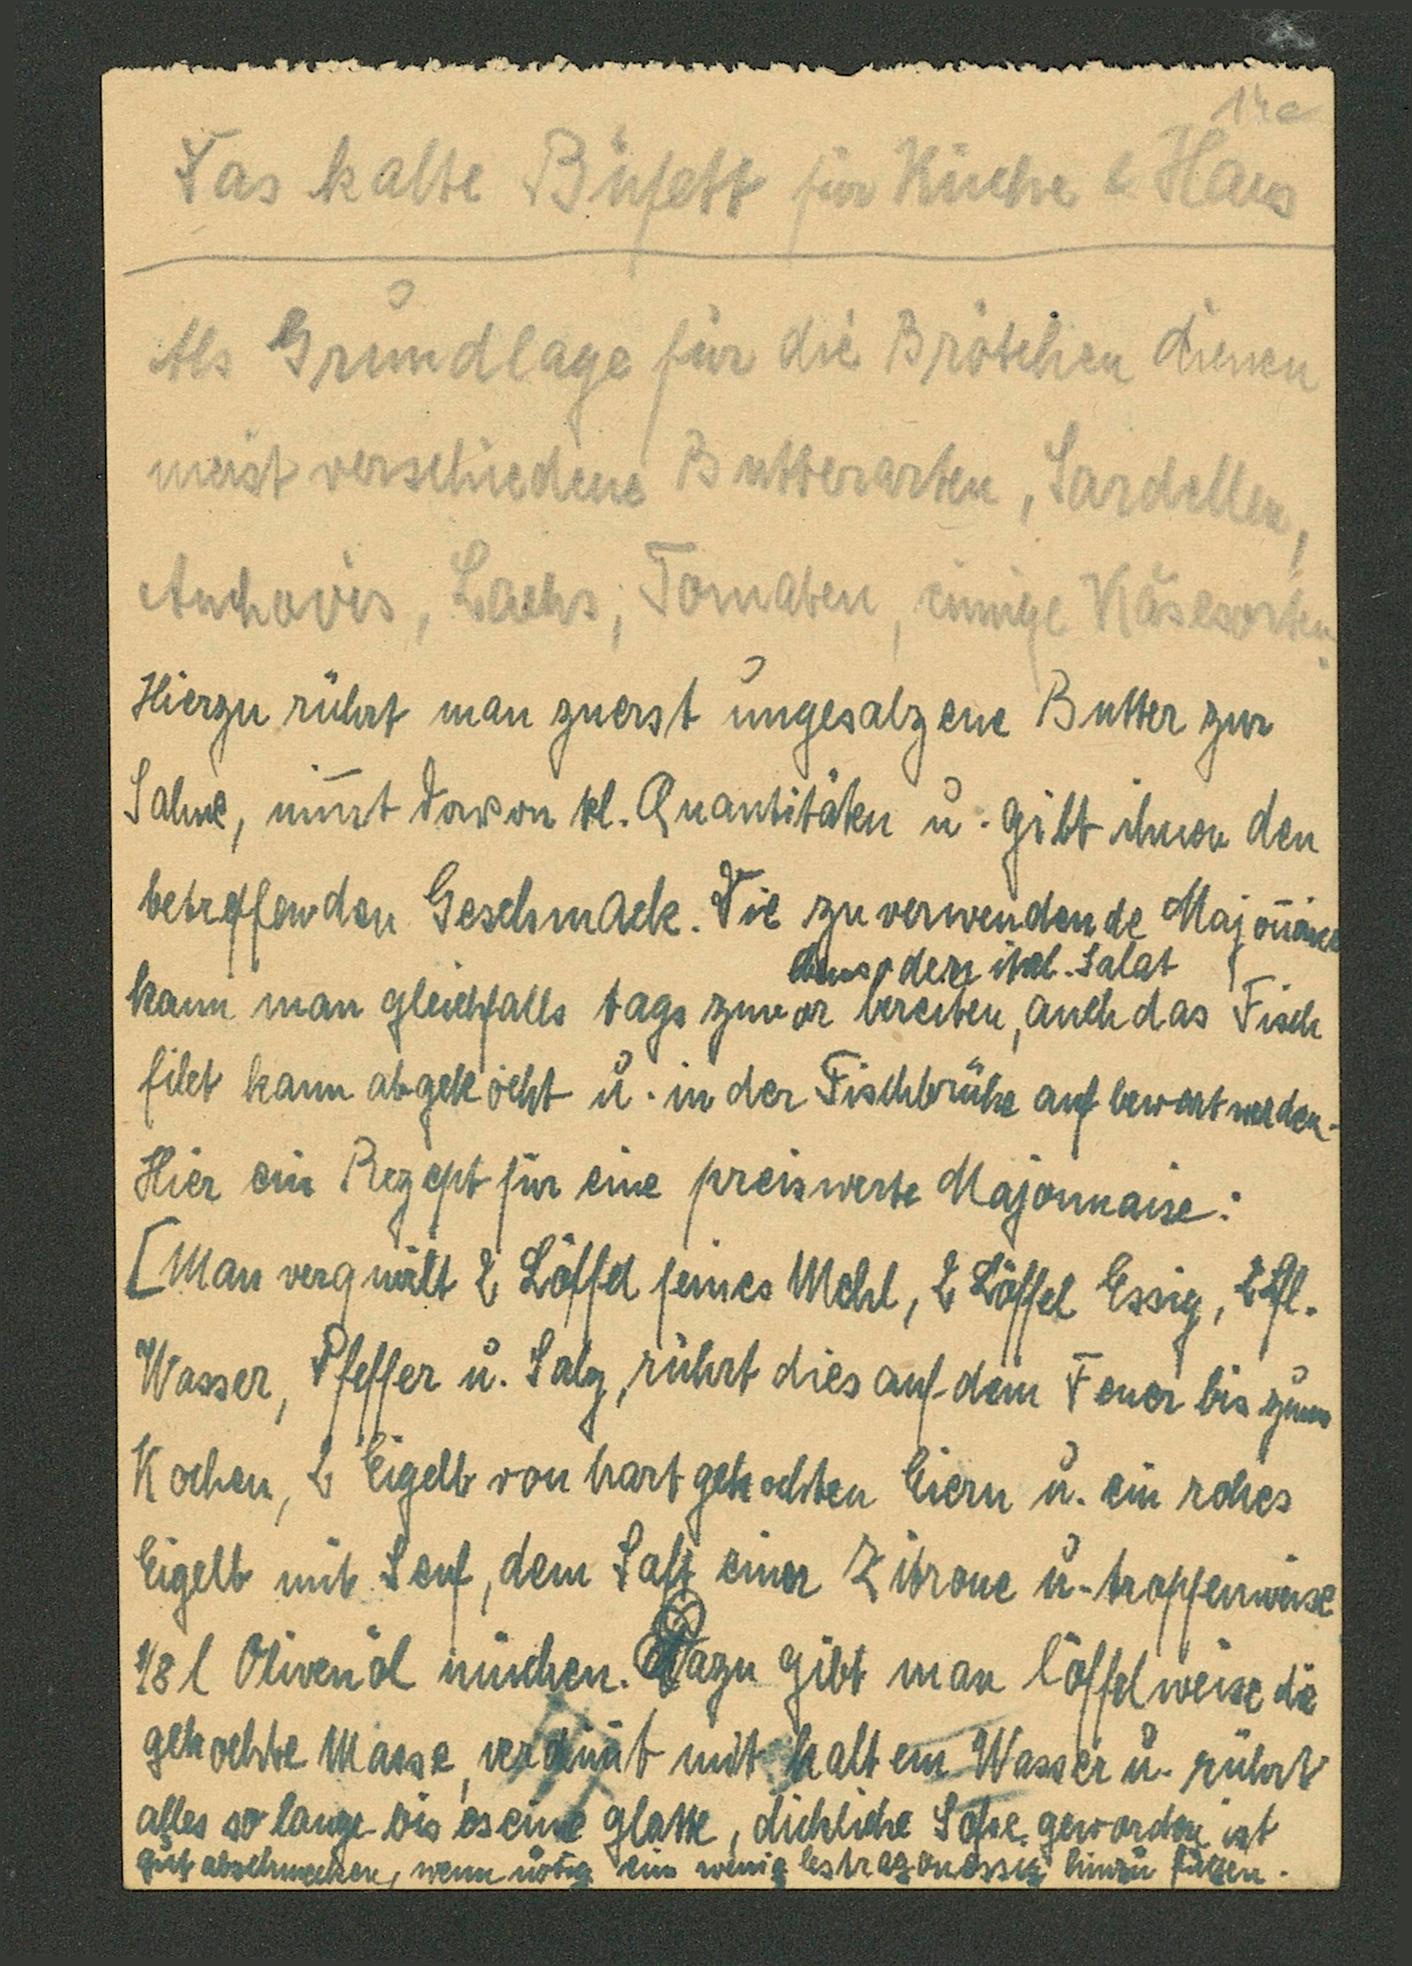 14a
Das kalte Büfett für Küche & Haus
Als Grundlage für die Brötchen dienen
meist verschiedene Butterarten, Sardellen,
Anchovis, Lachs, Tomaten, einige Käsesorten.
Hierzu rührt man zuerst ungesalzene Butter zur
Sahne, nim̄t davon kl. Quantitäten u. gibt ihnen den
betreffenden Geschmack. Die zu verwendende Majon̄aise
der ital. Salat
kann man gleichfalls tags zuvor bereiten, auch das Fisch
filet kann abgekocht u. in der Fischbrühe aufbewart werden.
Hier ein Rezept für eine preiswerte Majonnaise:
[Man verquirlt 2 Löffel feines Mehl, 2 Löffel Essig, 2 Lfl.
Wasser, Pfeffer u. Salz, rührt dies auf dem Feuer bis zum
Kochen, 2 Eigelb von hart gekochten Eiern u. ein rohes
Eigelb mit Senf, dem Saft einer Zitrone u. tropfenweise
1/8 l Olivenöl mischen. Dazu gibt man löffelweise die
gekochte Masse, verdünt mit kaltem Wasser u. rührt
alles so lange bis es eine glatte, dickliche Soße geworden ist
gut abschmecken, wenn nötig ein wenig Estragonessig hinzu fügen.